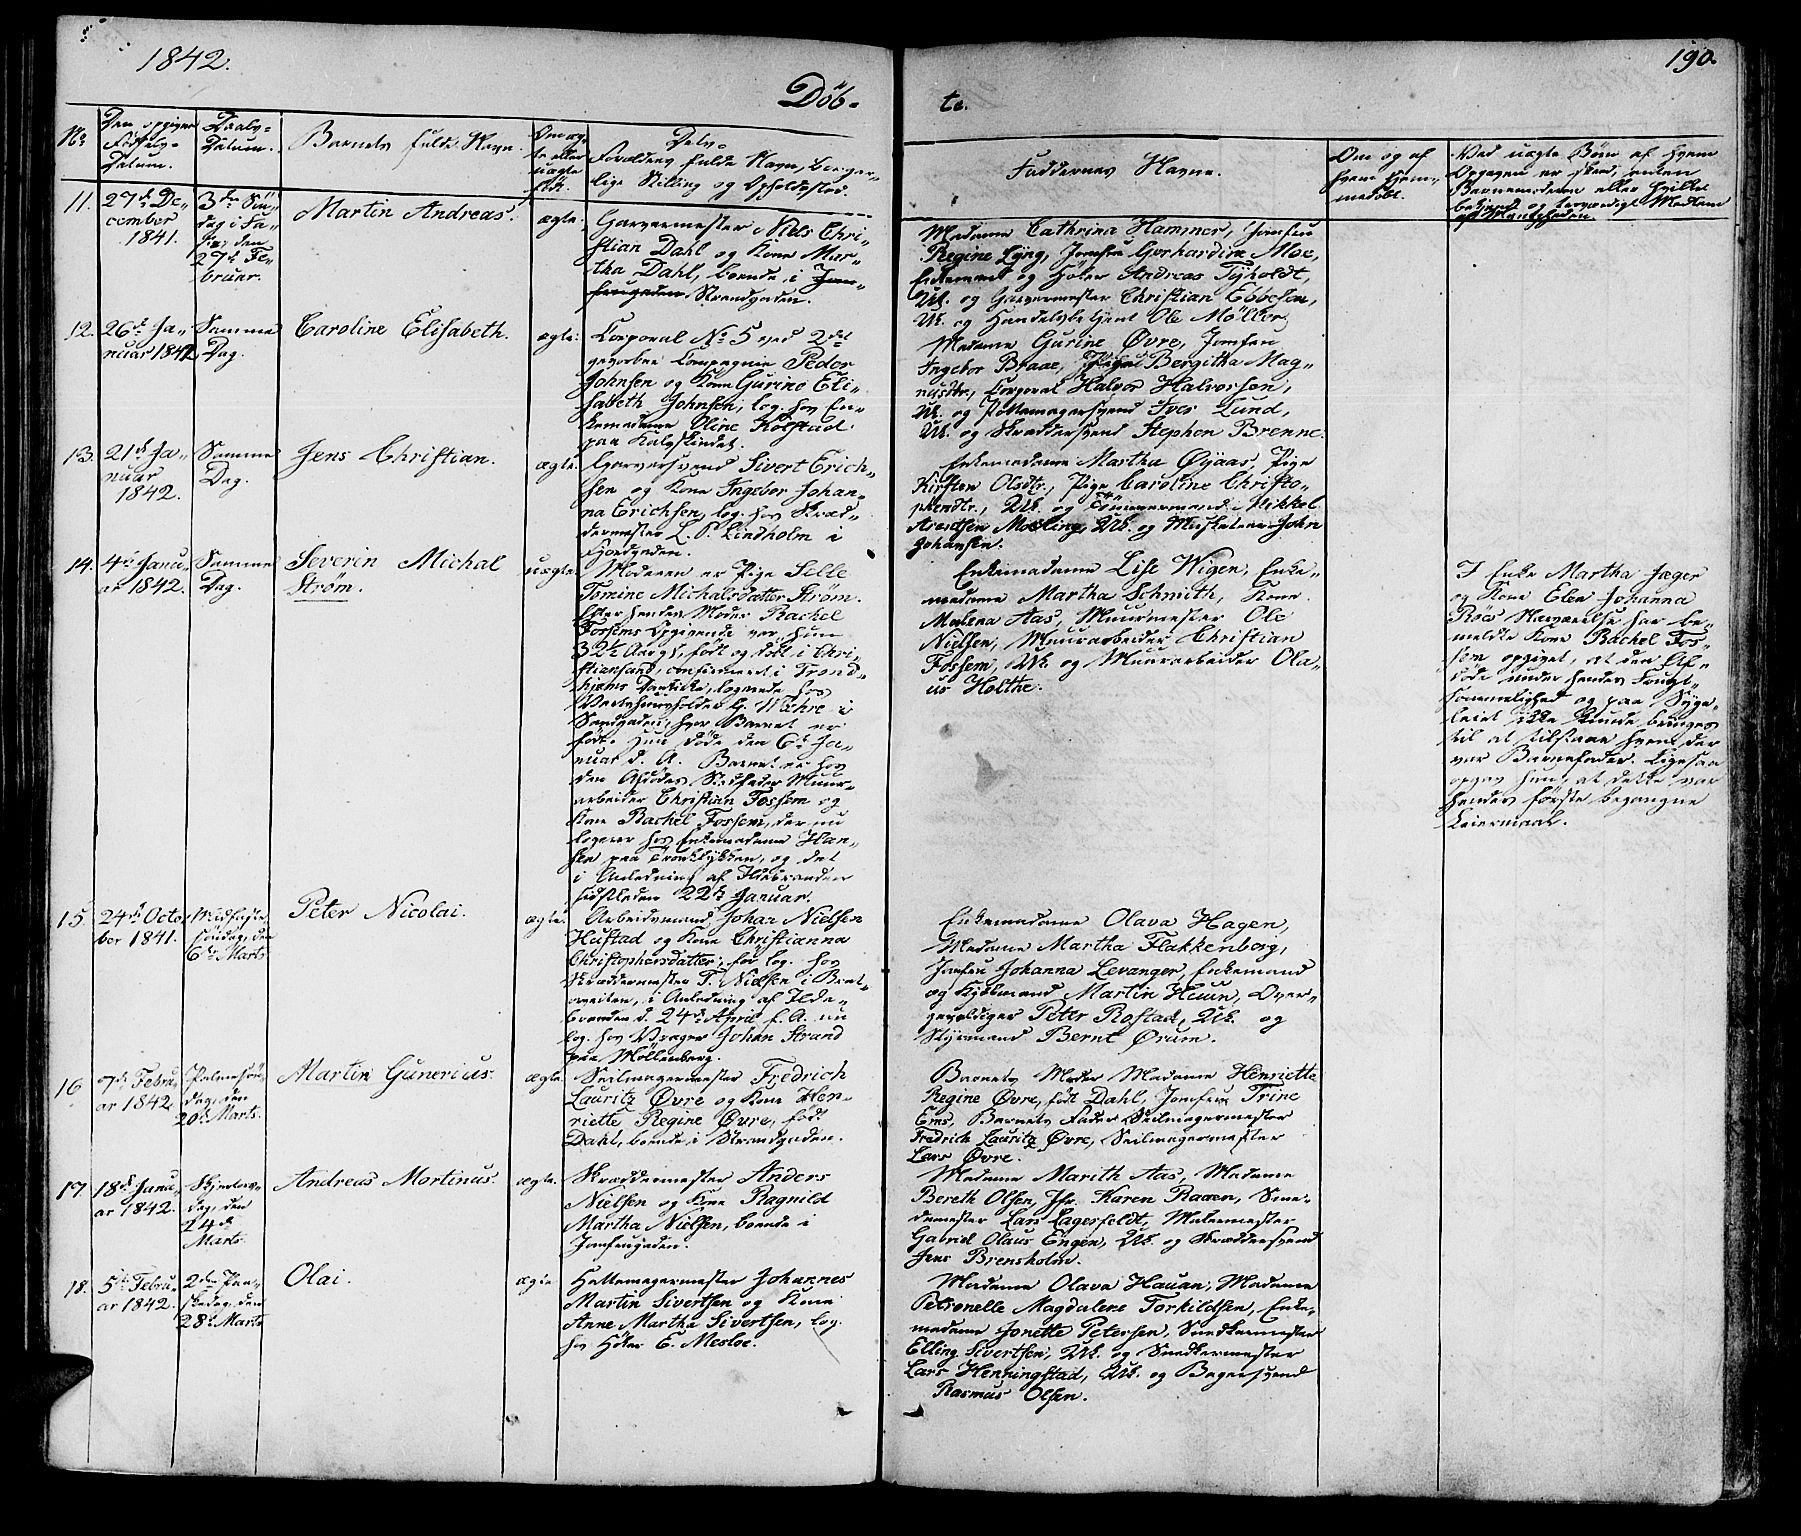 1842.
190.
Döb-
te.
No
Den opgivne
Födsels-
Datum.
Daabs-
Datum.
Barnets fulde Navn.
Om æg-
te eller
uægte
fød.
Forældrenes fulde Navn, borger-
lige Stilling og Opholdssted.
Faddernes Navne.
Om og af
hvem hjem-
medøbt.
Ved uægte Børn af hvem
Opgaven er skeet, enten
Barnemoderen eller hvilket
bekjendt og troværdigt Medlem
af Menigheden.
11.
27de De-
cember
1841.
3die Sön-
dag i Fa-
ste, den
27de Fe-
bruar.
Martin Andreas.
ægte.
Garvermester Niels Chri-
stian Dahl og Kone Mar-
tha Dahl, boende i Jom-
frugaden Strandgaden.
Madame Cathrina Hammer, Jomfru
Regine Lyng, Jomfru Gerhardine Moe,
Enkemand og Høker Andreas Tyholdt,
Uk. og Garvermester Christian Ebbesen,
Uk. og Handelsbetjent Ole Möller
12.
26de Ja-
nuar 1842
Samme
Dag.
Caroline Elisabeth.
ægte.
Corporal No 5 ved 2det
gevorbne Compagnie Peder
Johnsen og Kone Gurine Eli-
sabeth Johnsen, log. hos En-
kemadame Oline Kolstad
paa Kalvskindet.
Madame Gurine Øvre, Jomfru
Ingebor Braae, Pige Bergitha Mag-
nusdtr, Corporal Halvor Halvorsen,
Uk. og Pottemagersvend Iver Lund,
Uk. og Skræddersvend Stephen Brenne.
13.
21de Ja-
nuar
1842.
Samme
Dag.
Jens Christian.
ægte.
Garversvend Sivert Erich-
sen og Kone Ingebor Johan-
na Erichsen, log. hos Skræd-
dermester L. P. Lindholm i
Enkemadame Martha Øyaas, Pige
Kirsten Olsdtr., Pige Caroline Christo-
phersdtr., Uk. og Tømmermand Mikkel
Arentsen Mosling, Uk. og Musketeer John
Johansen.
14.
4de Janu-
ar 1842.
Samme
Dag.
Severin Michal
Ström.
uægte
Moderen er Pige Sille
Tomine Michalsdatter Ström.
Efter hendes Moder Rachel
Fossems Opgivende var hun
32½ Aar gl., født og døbt i Chri-
stiansand, confirmeret i Trond-
hjems Domkirke, logerede hos
Vertshuusholder G. Wehre i
Sandgaden, hvor Barnet er
født. Hun døde den 6te Ja-
nuar d. A. Barnet er hos
den Afdødes Stedfader Muur-
arbeider Christian Fossem og
Kone Rachel Fossem, der nu
logerer hos Enkemadame Han-
sen paa og det
i Anledning af Ildebranden
sidstleden 22de Januar.
Enkemadame Lise Wigen, Enke-
madame Martha Schmith, Kone
Malena Aas, Muurmester Ole
Nielsen, Muurarbeider Christian
Fossem, Uk. og Muurarbeider Ola-
us Holthe.
I Enke Martha Jæger
og Kone Elen Johanna
Röes Nærværelse har be-
meldte Kone Rachel Fos-
sem opgivet, at den Af-
døde under hendes Frugt-
sommelighed og paa Syge-
leiet ikke kunde bringes
til at tilstaae hvem der
var Barnefader. Ligesaa
opgav hun, at dette var
hendes første begangne
Leiermaal.
15.
24de Octo-
ber 1841.
Midfaste
söndag, den
6te Marts
Peter Nicolai.
ægte.
Arbeidsmand Johan Nielsen
Hustad og Kone Christianna
Christophersdatter, før log. hos
Skræddermester T. Nielsen i Brat-
ørveiten, i Anledning af Ilde-
branden d. 24de April f. A. nu
log. hos Vrager Johan Strand
paa Möllenberg.
Enkemadame Olava Hagen,
Madame Martha Flakkenberg,
Jomfru Johanna Levanger, Enkemand
og Kjøbmand Martin Huun, Over-
Peter Rostad, Uk. og
Styrmand Bernt Ørum.
16
7de Febru-
ar 1842.
Palmesön-
dag, den
20de Marts.
Martin Gunerius.
ægte.
Seilmagermester Fredrich
Lauritz Øvre og Kone Hen-
riette Regine Øvre, født
Dahl, boende i Strandgaden.
Barnets Moder Madame Henriette
Regine Øvre, født Dahl, Jomfru Trine
Ems, Barnets Fader Seilmagermester
Fredrich Lauritz Øvre, Seilmagermester
Lars Øvre.
17.
18de Janu-
ar 1842.
Skjertors-
dag, den
24de
Marts.
Andreas Mortinus.
ægte.
Skræddermester Anders
Nielsen og Kone Ragnild
Martha Nielsen, boende i
Jomfrugaden.
Madame Marith Aas, Madame
Bereth Olsen, Jfr. Karen Raaen, Sme-
demester Lars Lagesfeldt, Malermester
Gabriel Olaus Engen, Uk. og Skræddersvend
Jens Brensholm.
18.
5te Febru-
ar 1842.
2den Paa-
skedag, den
28de Marts
Olai.
ægte
Hattemagermester Johannes
Martin Sivertsen og Kone
Anne Martha Sivertsen, log.
hos Höker E. Mesloe.
Madame Olava Hauan, Madame
Petronelle Magdalene Torkildsen, Enke-
madame Jonette Petersen, Snedkermester
Elling Sivertsen, Uk. og Snedkermester
Lars Henningstad, Uk. og Bagersvend
Rasmus Olsen.